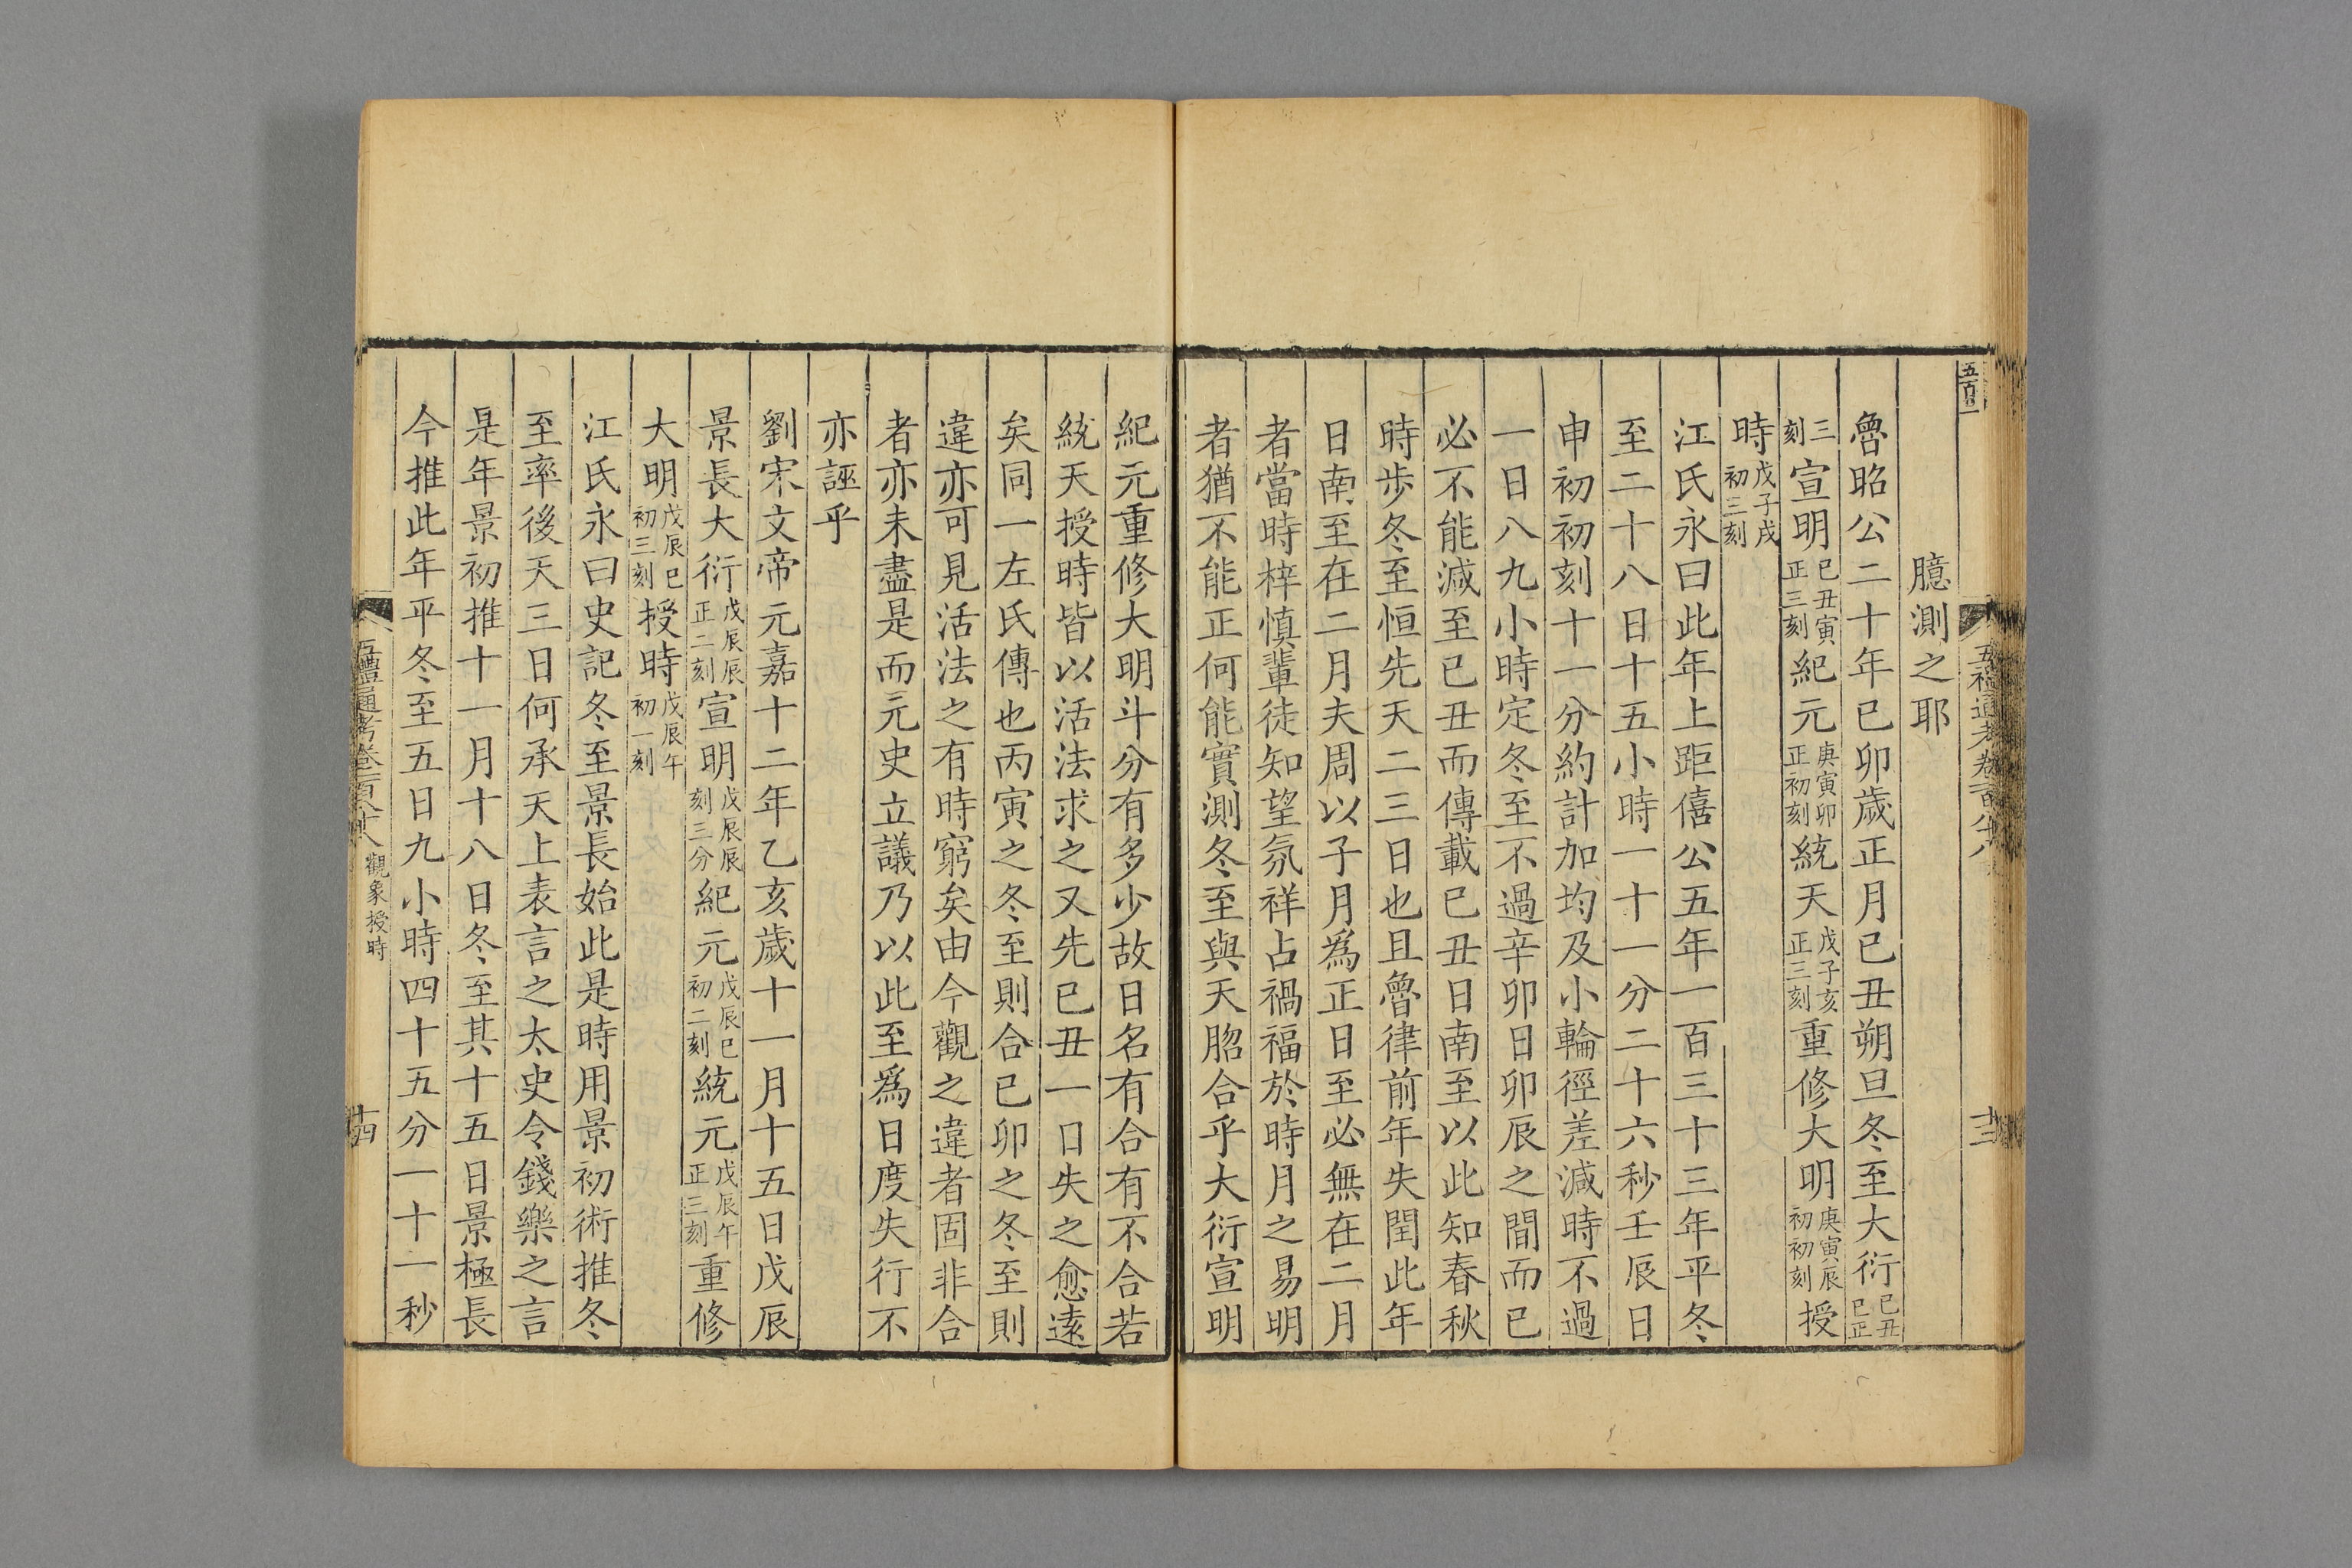 臆測之耶
魯昭公二十年己卯歲正月己丑朔旦冬至大衍己丑巳正
三刻宣明己丑寅正三刻紀元庚寅卯正初刻統天戊子亥正三刻重修大明庚寅辰初初刻授
時戊子戌初三刻
江氏永曰此年上距僖公五年一百三十三年平冬
至二十八日十五小時一十一分二十六秒壬辰日
申初初刻十一分約計加均及小輪徑差減時不過
一日八九小時定冬至不過辛卯日卯辰之間而已
必不能減至己丑而傳載己丑日南至以此知春秋
時步冬至恒先天二三日也且魯律前年失閏此年
日南至在二月夫周以子月為正日至必無在二月
者當時梓慎輩徒知望氛祥占禍福於時月之易明
者猶不能正何能實測冬至與天脗合乎大衍宣明
紀元重修大明斗分有多少故日名有合有不合若
統天授時皆以活法求之又先己丑一日失之愈遠
矣同一左氏傳也丙寅之冬至則合己卯之冬至則
違亦可見活法之有時窮矣由今觀之違者固非合
者亦未盡是而元史立議乃以此至為日度失行不
亦誣乎
劉宋文帝元嘉十二年乙亥歲十一月十五日戊辰
景長大衍戊辰辰正二刻宣明戊辰辰刻三分紀元戊辰巳初二刻統元戊辰午正三刻重修
大明戊辰巳初三刻授時戊辰午初一刻
江氏永曰史記冬至景長始此是時用景初術推冬
至率後天三日何承天上表言之太史令錢樂之言
是年景初推十一月十八日冬至其十五日景極長
今推此年平冬至五日九小時四十五分一十一秒
五禮通考卷一百八十八 觀象授時
十四
五禮通考卷一百八十八
十三